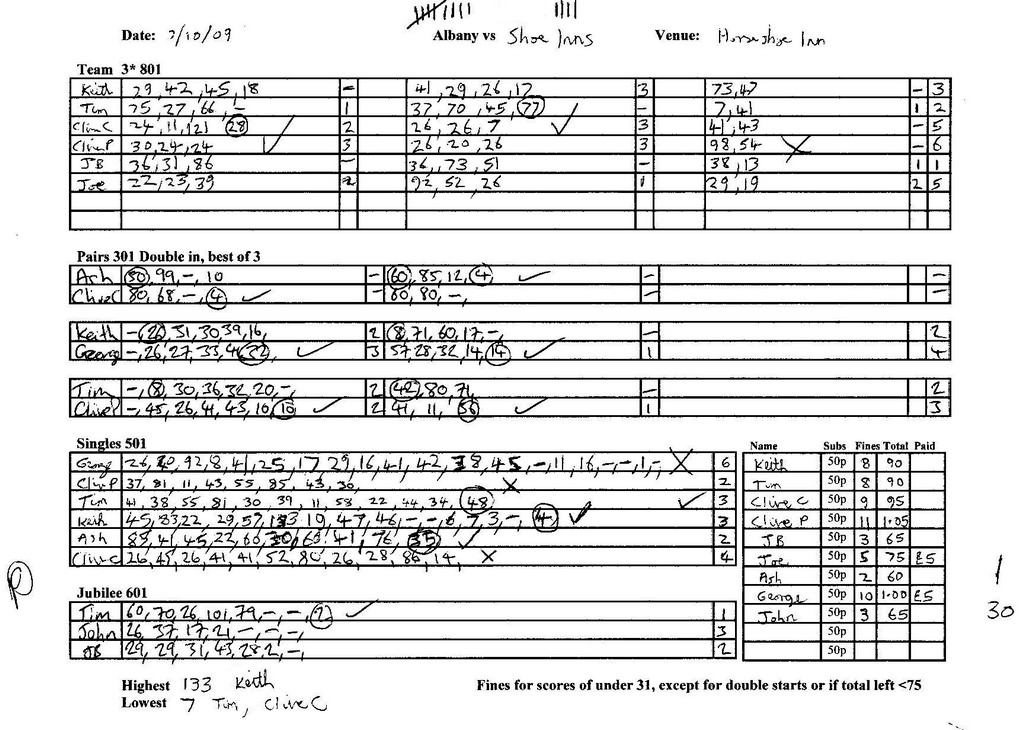 Date: 7/10/09 Albany vs Shoe Inns Venue: Horseshoe Inn
Team 3* 801
Keith 29, 42, 45, 18 - 41, 29, 26, 17 3 73, 47 - 3
Tim 25, 27, 66, - 1 37, 70, 45, 77 ✓ - 7, 41 1 2
Clive C 24, 11, 121 28 ✓ 2 26, 26, 7 3 41, 43 - 5
Clive P 30, 24, 24 3 26, 20, 26 3 98, 54 X - 6
JB 36, 31, 86 - 36, 73, 51 - 38, 13 1 1
Joe 22, 23, 39 2 92, 52, 26 1 29, 19 2 5
Pairs 301 Double in, best of 3
Ash 50, 99, -, 10 - 60, 85, 12, 4 ✓ - -
Clive C 80, 68, -, 4 ✓ - 60, 80, -, - -
Keith -, 26, 31, 30, 39, 16, 2 8, 71, 60, 17, -, - 2
George -, 26, 27, 33, 4 32, ✓ 3 57, 28, 32, 14, 14 ✓ 1 4
Tim -, 8, 30, 36, 32, 20, -, 2 42, 80, 71, - 2
Clive P -, 45, 26, 41, 43, 10, 10 ✓ 2 41, 11, 56 ✓ 1 3
Singles 501
George 26, 92, 8, 41, 25, 17, 29, 16, 41, 42, 38, 45, -, 11, 16, -, -, 1, - X 6
Clive P 37, 81, 11, 43, 55, 85, 43, 36, X 2
Tim 41, 38, 55, 81, 30, 39, 11, 58, 22, 44, 34, 48 ✓ 3
Keith 45, 83, 22, 29, 57, 133, 19, 47, 46, -, -, 6, 7, 3, -, 4 ✓ 3
Ash 85, 41, 45, 22, 60, 30, 63, 41, 76, 35 ✓ 2
Clive C 26, 45, 26, 41, 41, 52, 80, 26, 28, 86, 14, X 4
Name Subs Fines Total Paid
Keith 50p 8 90
Tim 50p 8 90
Clive C 50p 9 95
Clive P 50p 11 1.05
JB 50p 3 65
Joe 50p 5 75 £5
Ash 50p 2 60
George 50p 10 1.00 £5
John 50p 3 65
50p
50p
1
30
Jubilee 601
Tim 60, 70, 26, 101, 79, -, -, 2 ✓ 1
John 26, 37, 17, 21, -, -, -, 3
JB 29, 29, 31, 43, 28, 2, -, 2
Highest 133 Keith
Lowest 7 Tim, Clive C
Fines for scores of under 31, except for double starts or if total left <75